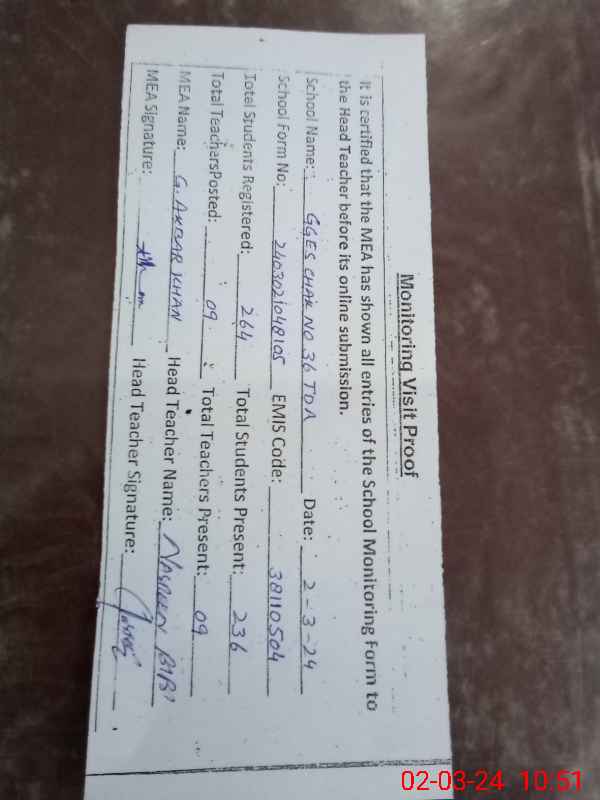 Monitoring Visit Proof
It is certified that the MEA has shown all entries of the School Monitoring Form to
the Head Teacher before its online submission.
School Name: GGES CHAK NO 36 TDA Date: 2-3-24
School Form No: 2403021048105 EMIS Code: 38110504
Total Students Registered: 264 Total Students Present: 236
Total TeachersPosted: 09 Total Teachers Present: 09
MEA Name: G. AKBAR KHAN Head Teacher Name: NASREEN BIBI
MEA Signature: Head Teacher Signature:
02-03-24 10:51